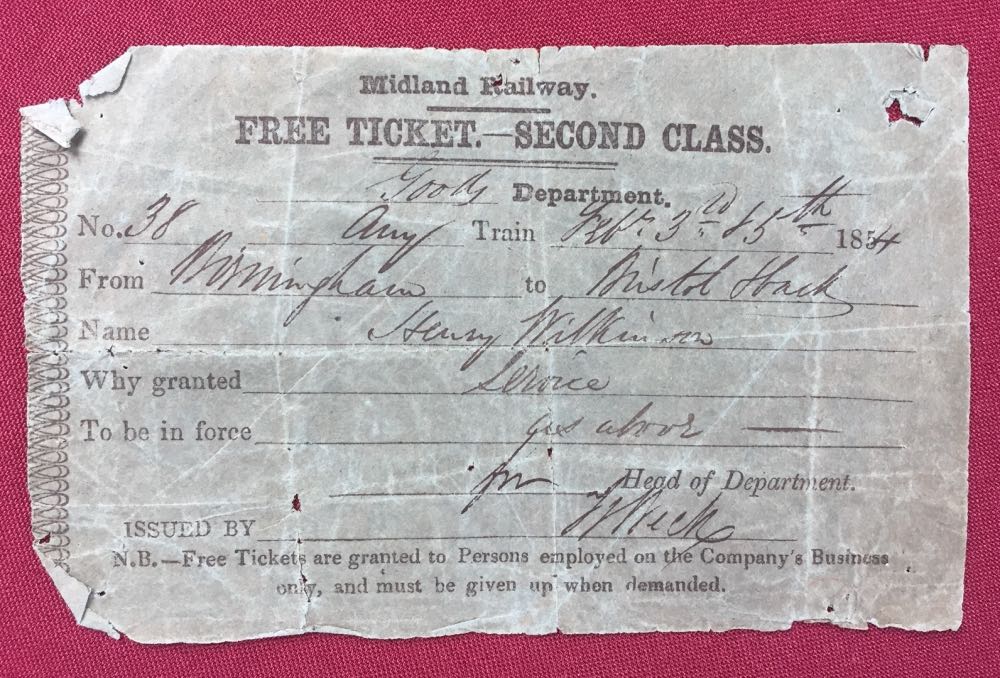 Midland Railway.
FREE TICKET.—SECOND CLASS.
Goods Department.
No. 38 Any Train Feby. 3rd & 5th 1854
From Birmingham to Bristol & back
Name Henry Wilkinson
Why granted Service
To be in force as above
for Head of Department.
ISSUED BY
N.B.—Free Tickets are granted to Persons employed on the Company's Business
only, and must be given up when demanded.